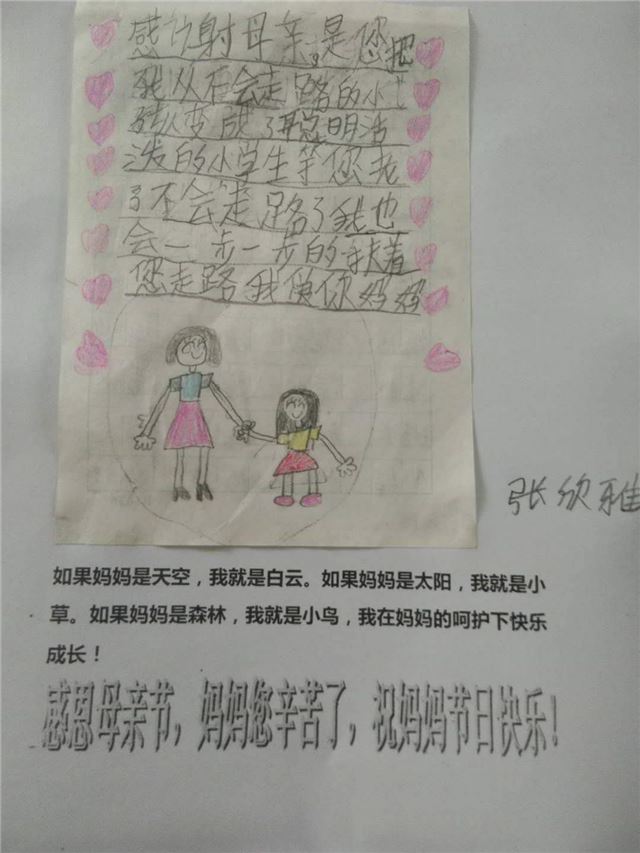 感谢母亲是您把
我从不会走路的小
孩变成了聪明活
泼的小学生等您老
了不会走路了我也
会一步一步的扶着
您走路我爱你妈妈
张欣雅
如果妈妈是天空，我就是白云。如果妈妈是太阳，我就是小
草。如果妈妈是森林，我就是小鸟，我在妈妈的呵护下快乐
成长！
感恩母亲节，妈妈您辛苦了，祝妈妈节日快乐！